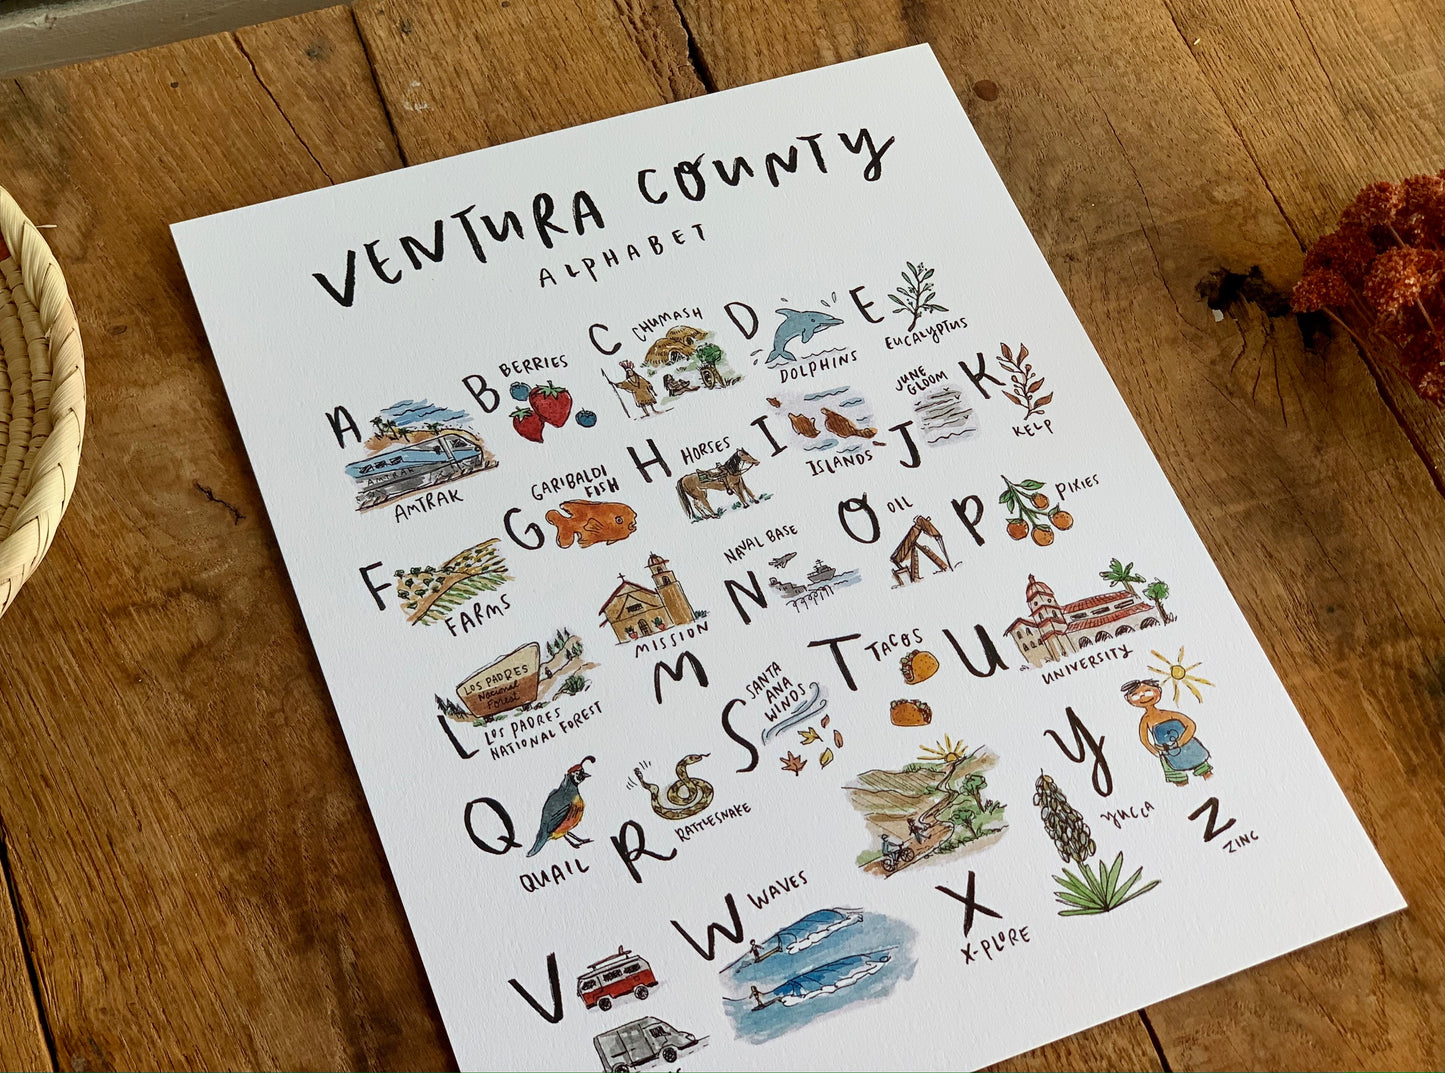 VENTURA COUNTY
ALPHABET
A
AMTRAK
AMTRAK
B
BERRIES
C
CHUMASH
D
DOLPHINS
E
EUCALYPTUS
F
FARMS
G
GARIBALDI
FISH
H
HORSES
I
ISLANDS
JUNE
GLOOM
J
K
KELP
LOS PADRES
National
Forest
L
LOS PADRES
NATIONAL FOREST
MISSION
M
NAVAL BASE
N
O
OIL
P
PIXIES
Q
QUAIL
R
RATTLESNAKE
S
SANTA
ANA
WINDS
T
TACOS
U
UNIVERSITY
V
W
WAVES
X
X-PLORE
Y
YUCCA
Z
ZINC